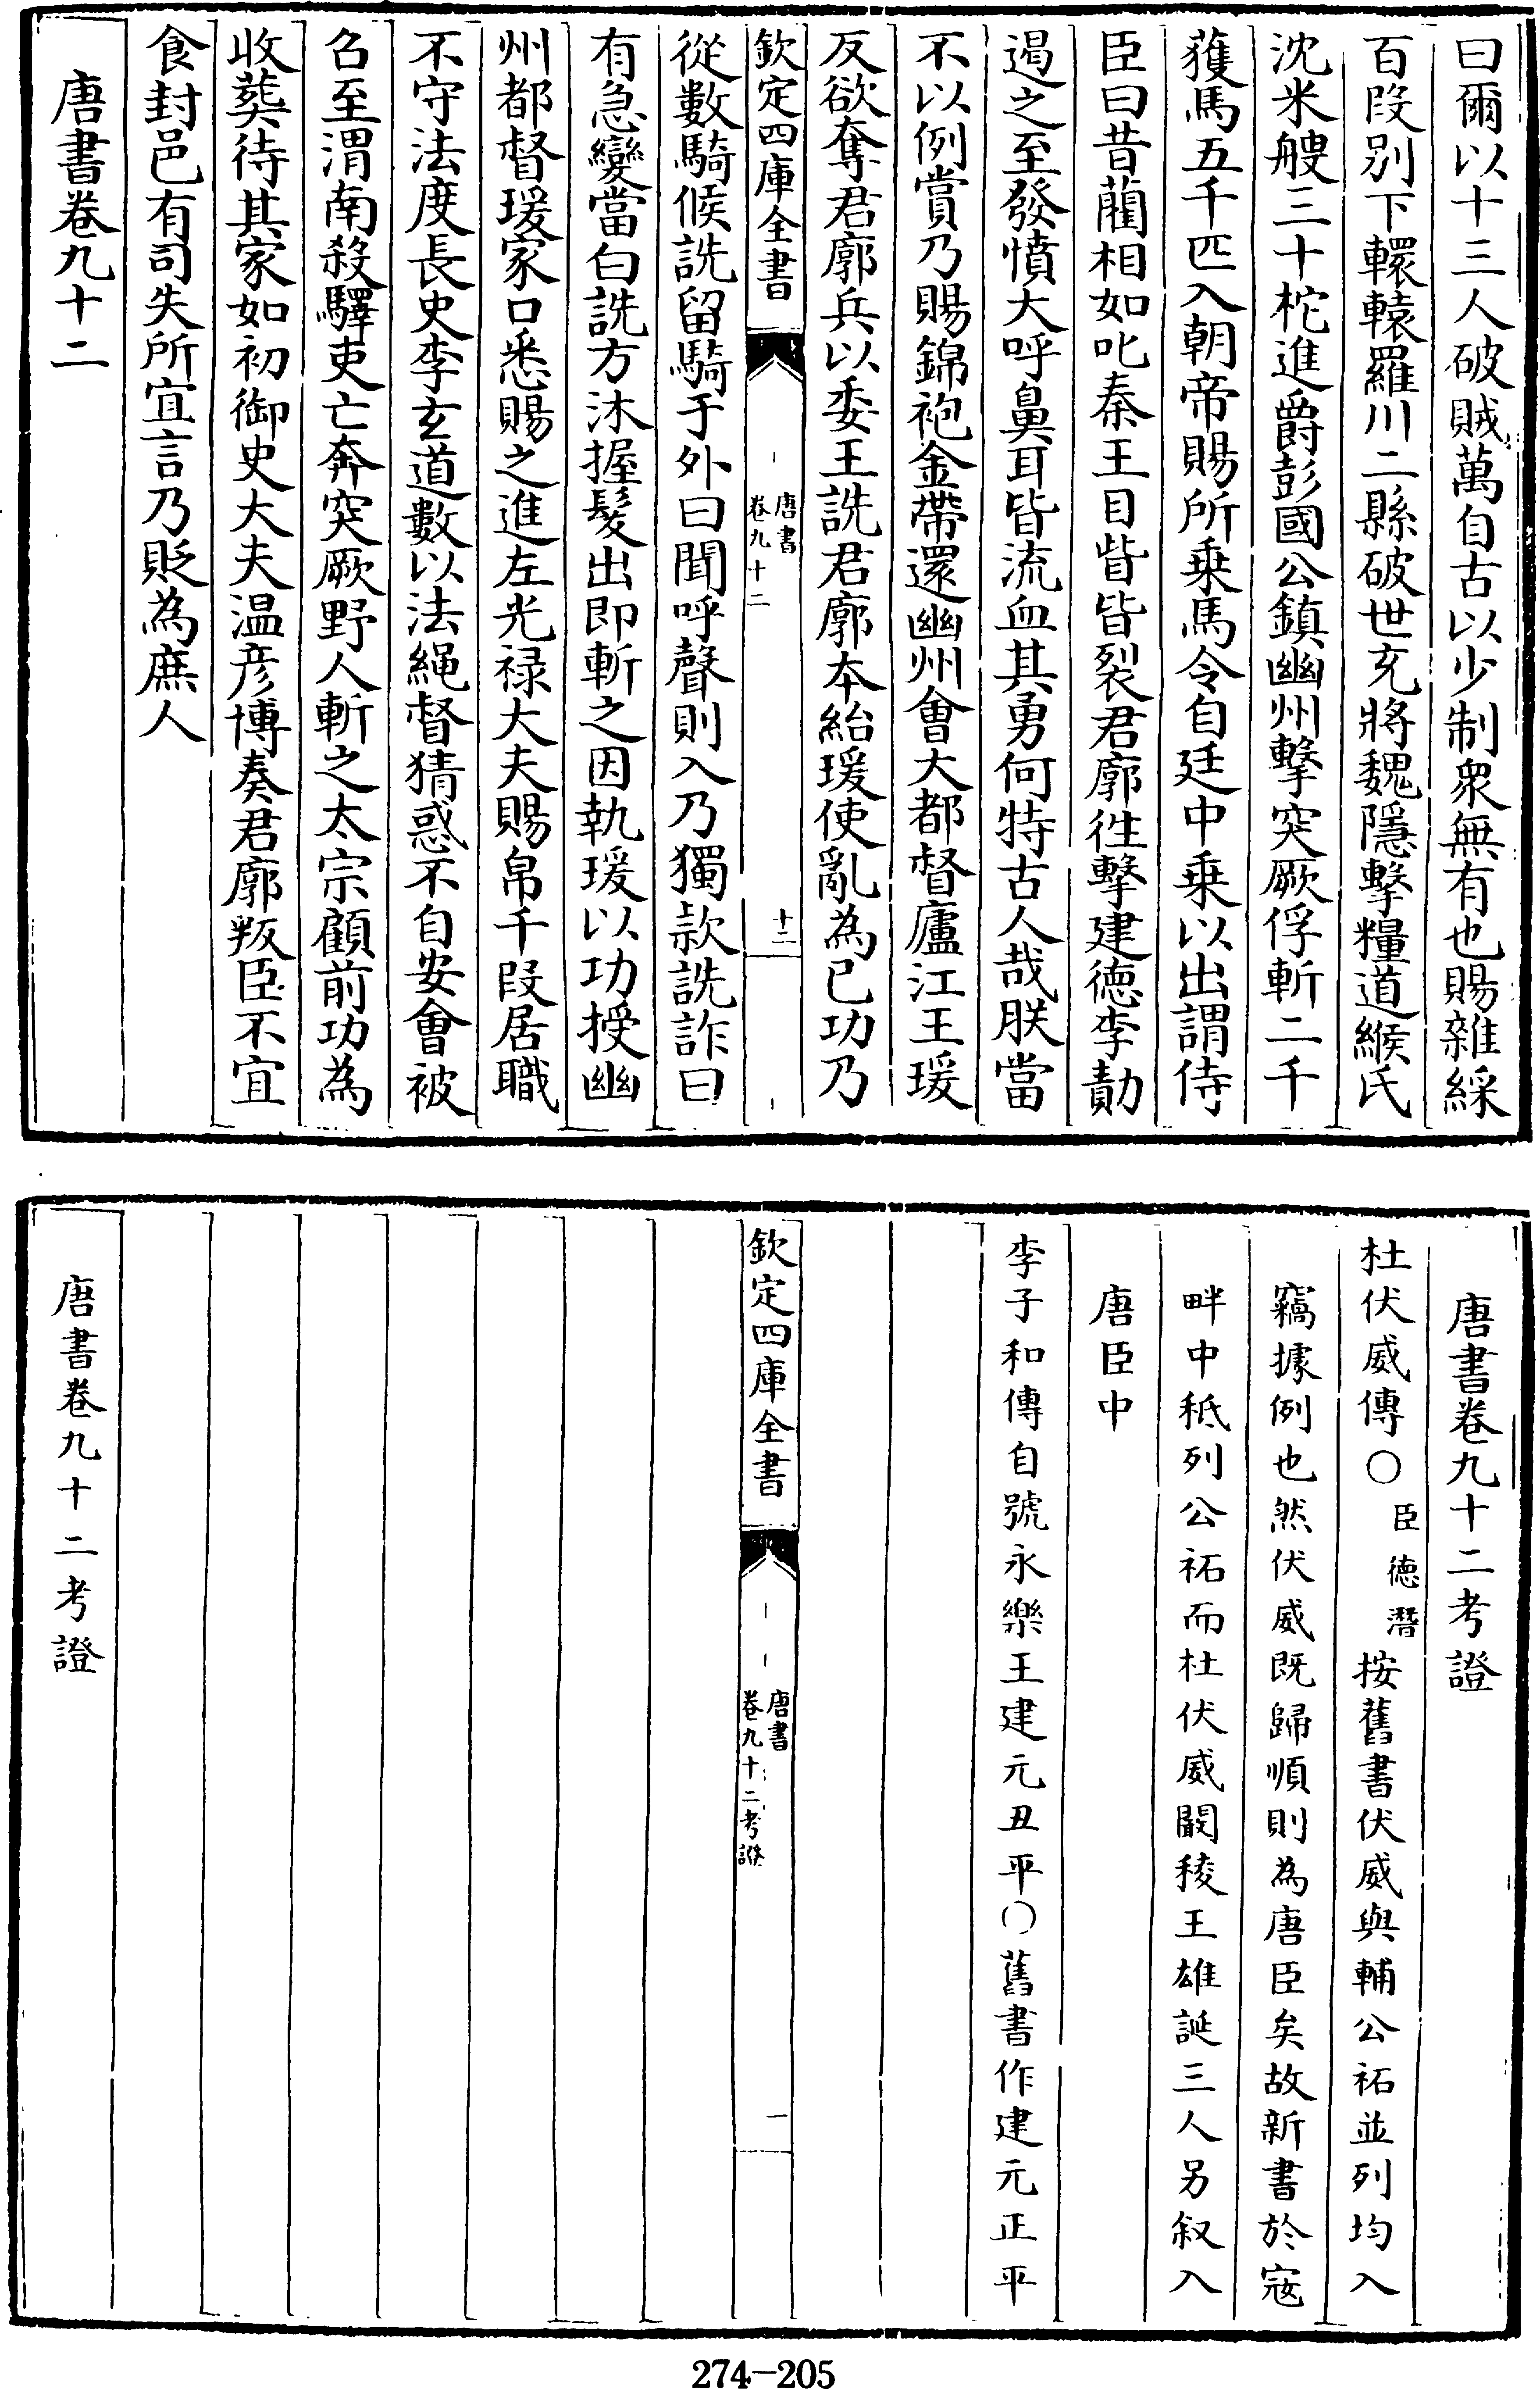 曰爾以十三人破賊萬自古以少制衆無有也賜雜綵
百段別下轘轅羅川二縣破世充將魏隱擊糧道緱氏
沈米艘三十柁進爵彭國公鎮幽州擊突厥俘斬二千
獲馬五千匹入朝帝賜所乗馬令自廷中乗以出謂侍
臣曰昔藺相如叱秦王目眥皆裂君廓徃擊建德李勣
遏之至發憤大呼鼻耳皆流血其勇何特古人哉朕當
不以例賞乃賜錦袍金帶還幽州會大都督廬江王瑗
反欲奪君廓兵以委王詵君廓本紿瑗使亂為已功乃
欽定四庫全書
唐書
卷九十二
十二
從數騎候詵留騎于外曰聞呼聲則入乃獨款詵詐曰
有急變當白詵方沐握髮出即斬之因執瑗以功授幽
州都督瑗家口悉賜之進左光禄大夫賜帛千段居職
不守法度長史李玄道數以法繩督猜惑不自安會被
召至渭南殺驛吏亡奔突厥野人斬之太宗顧前功為
收葬待其家如初御史大夫温彦博奏君廓叛臣不宜
食封邑有司失所宜言乃貶為庶人
唐書卷九十二
唐書卷九十二考證
杜伏威傳○臣德潛按舊書伏威與輔公祏並列均入
竊據例也然伏威既歸順則為唐臣矣故新書於寇
畔中秪列公祏而杜伏威闞稜王雄誕三人另叙入
唐臣中
李子和傳自號永樂王建元丑平○舊書作建元正平
欽定四庫全書
唐書
卷九十二考證
一
唐書卷九十二考證
274-205